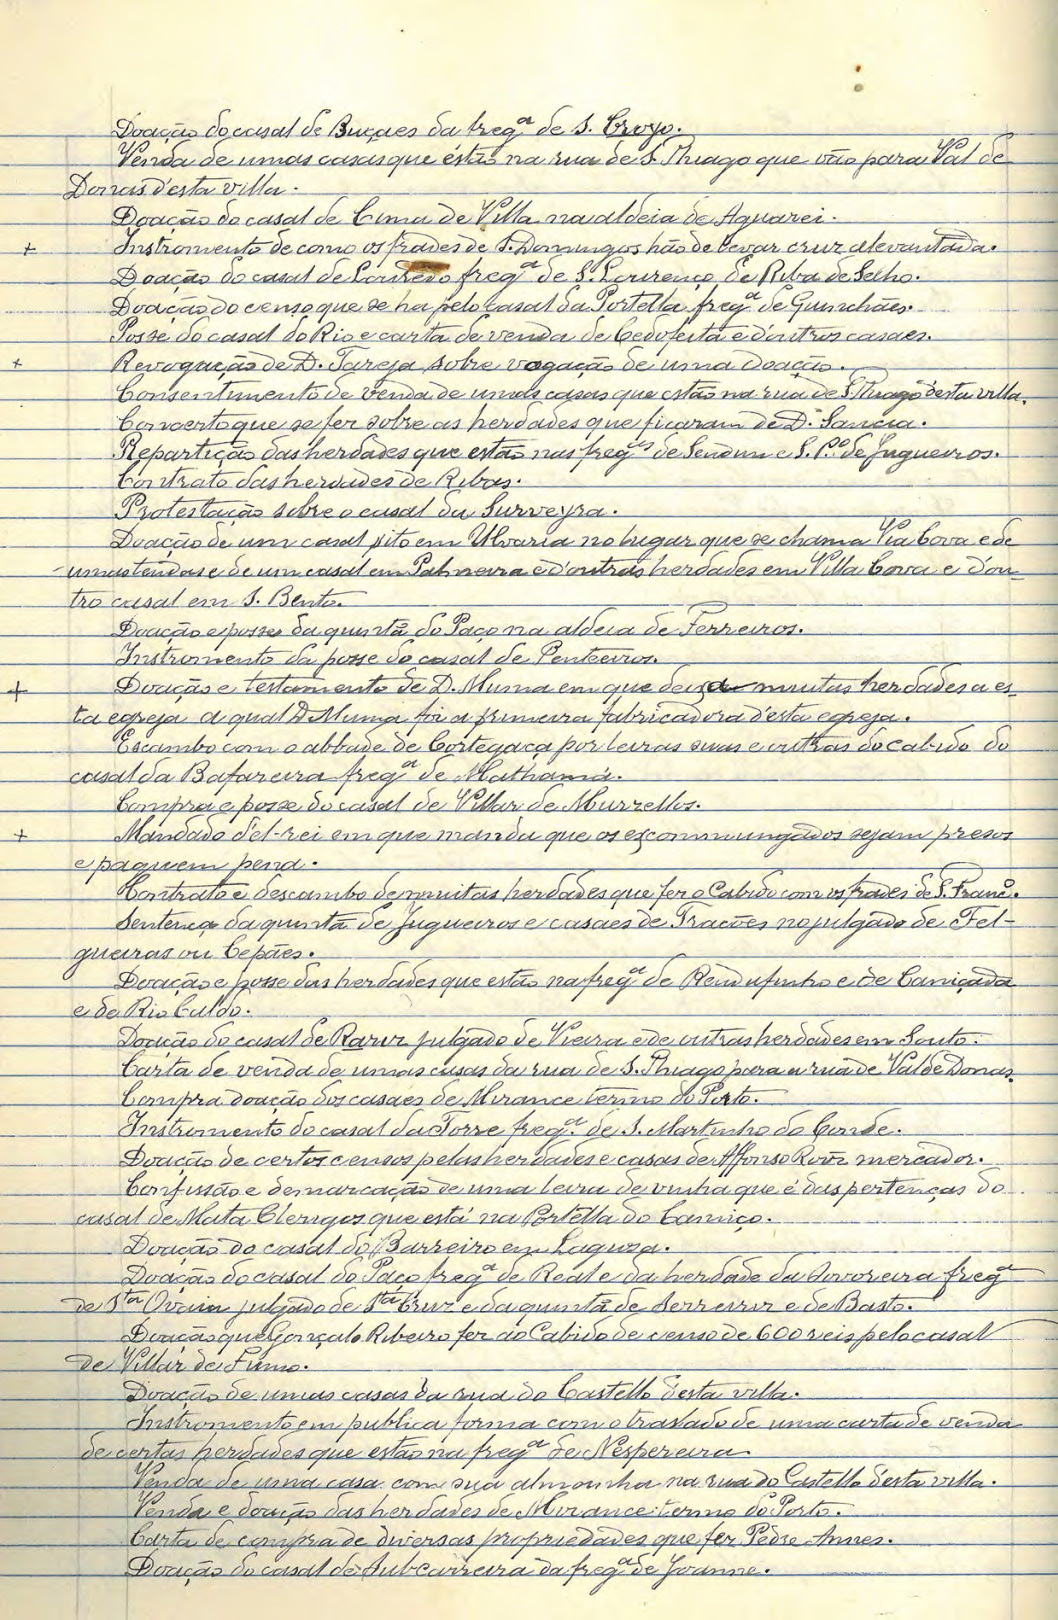 Doação do casal de Buçaes da freg.ª de S. Croyo.
Venda de umas casas que estão na rua de S. Thiago que vão para Val de
Donas d'esta villa.
Doação do casal de Cima de Villa na aldeia de Aguarei.
+ Instromento de como os frades de S. Domingos hão de levar cruz alevantada.
Doação do casal de Louredo freg.ª de S. Lourenço de Riba de Selho.
Doação do censo que se ha pelo casal da Portella freg.ª de Gunchães.
Posse do casal do Rio e carta de venda de Cedofeita e d'outros casaes.
+ Revogação de D. Tareja sobre vogação de uma doação.
Consentimento de venda de umas casas que estão na rua de S. Thiago d'esta villa.
Concerto que se fez sobre as herdades que ficaram de D. Sancia.
Repartição das herdades que estão nas freg.as de Sendim e S. P.º de Jugueiros.
Contrato das herdades de Ribas.
Protestação sobre o casal da Surveyra.
Doação de um casal sito em Ulvaria no lugar que se chama Via Cova e de
umas tendas e de um casal em Palmeira e d'outras herdades em Villa Cova e d'ou-
tro casal em S. Bento.
Doação e posse da quintã do Paço na aldeia de Ferreiros.
Instromento da posse do casal de Penteeiros.
+ Doação e testamento de D. Muma em que deixa muitas herdades a es-
ta egreja a qual D. Muma foi a primeira fabricadora d'esta egreja.
Escambo com o abbade de Cortegaça por leiras suas e outras do cabido do
casal da Bafareira freg.ª de Mathamá.
Compra e posse do casal de Villar de Murzellos.
+ Mandado d'el-rei em que manda que os excommungados sejam presos
e paguem pena.
Contrato e descambo de muitas herdades que fez o Cabido com os frades de S. Franc.º
Sentença da quintã de Jugueiros e casaes de Tracões no julgado de Fel-
gueiras ou Cepães.
Doação e posse das herdades que estão na freg.ª de Rendufinho e de Caniçada
e de Rio Caldo.
Doação do casal de Rarir julgado de Vieira e de outras herdades em Souto.
Carta de venda de umas casas da rua de S. Thiago para a rua de Val de Donas.
Compra doação dos casaes de Mirance termo do Porto.
Instromento do casal da Torre freg.ª de S. Martinho do Conde.
Doação de certos censos pelas herdades e casas de Affonso Roiz mercador.
Confissão e demarcação de uma leira de vinha que é das pertenças do
casal de Mata Clerigos que está na Portella do Caniço.
Doação do casal do Barreiro em Lagoza.
Doação do casal do Paço freg.ª de Real e da herdade da Arvoreira freg.ª
de S.ta Ovaia julgado de S.ta Cruz e da quintã de e de Basto.
Doação que Gonçalo Ribeiro fez ao Cabido de censo de 600 reis pelo casal
de Villar de Fumo.
Doação de umas casas da rua do Castello d'esta villa.
Instromento em publica forma com o traslado de uma carta de venda
de certas herdades que estão na freg.ª de Nespereira
Venda de uma casa com sua almoinha na rua do Castello d'esta villa.
Venda e doação das herdades de Mirance termo do Porto.
Carta de compra de diversas propriedades que fez Pedre Annes.
Doação do casal de Subcarreira da freg.ª de Joanne.